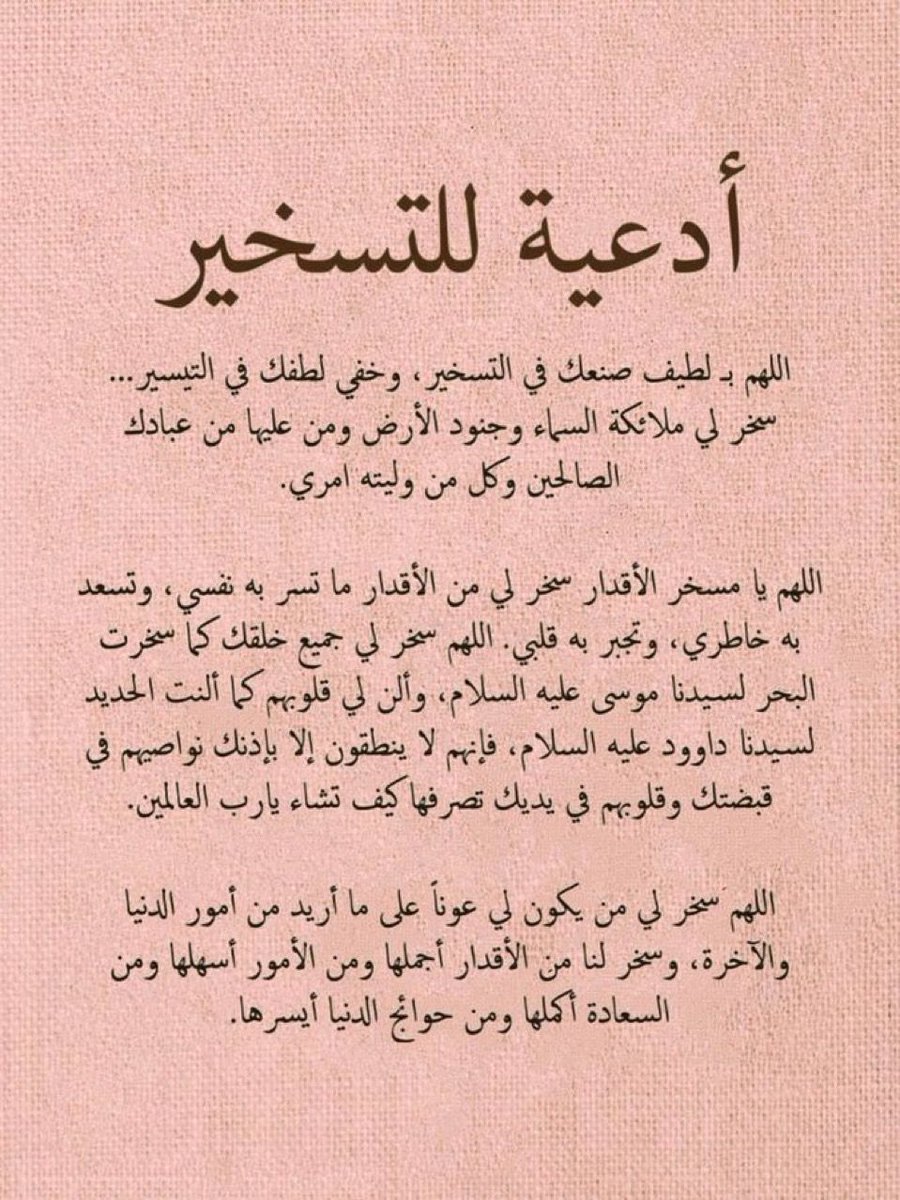 أدعية للتسخير
اللهم بـ لطيف صنعك في التسخير، وخفي لطفك في التيسير...
سخر لي ملائكة السماء وجنود الأرض ومن عليها من عبادك
الصالحين وكل من وليته امري.
اللهم يا مسخر الأقدار سخر لي من الأقدار ما تسر به نفسي، وتسعد
به خاطري، وتجبر به قلبي. اللهم سخر لي جميع خلقك كما سخرت
البحر لسيدنا موسى عليه السلام، وألن لي قلوبهم كما ألنت الحديد
لسيدنا داوود عليه السلام، فإنهم لا ينطقون إلا بإذنك نواصيهم في
قبضتك وقلوبهم في يديك تصرفها كيف تشاء يارب العالمين.
اللهمَ سخر لي من يكون لي عوناً على ما أريد من أمور الدنيا
والآخرة، وسخر لنا من الأقدار أجملها ومن الأمور أسهلها ومن
السعادة أكملها ومن حوائج الدنيا أيسرها.